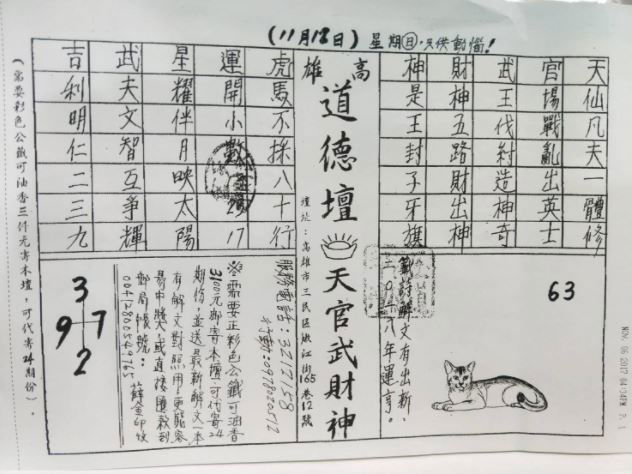 (11月12日) 星期日，只供勸惱！
天仙凡夫一體修
官場戰亂出英士
武王伐紂造神奇
財神五路財出神
神是王封子牙旗
63
籤詩解文有出新，
二〇一八年運亨。
高雄
道德壇
天官武財神
壇址：高雄市三民區嫩江街165巷12號
虎馬不採八十行
運開小數 17
星耀伴月映太陽
武夫文智互爭輝
吉利明仁二三九
服務電話：3217158
手動：0978020512
※需要正彩色公籤可油香
3100元郵寄本壇，可代寄24
期份，並送最新解文一本
有解文對照用，更能容
易中獎，或直接匯款到
郵局帳號：
3
9 7
2
(需要彩色公籤可油香三仟元寄本壇，可代寄24期份)。
NOV. 06 2017 04:34PM P. 1